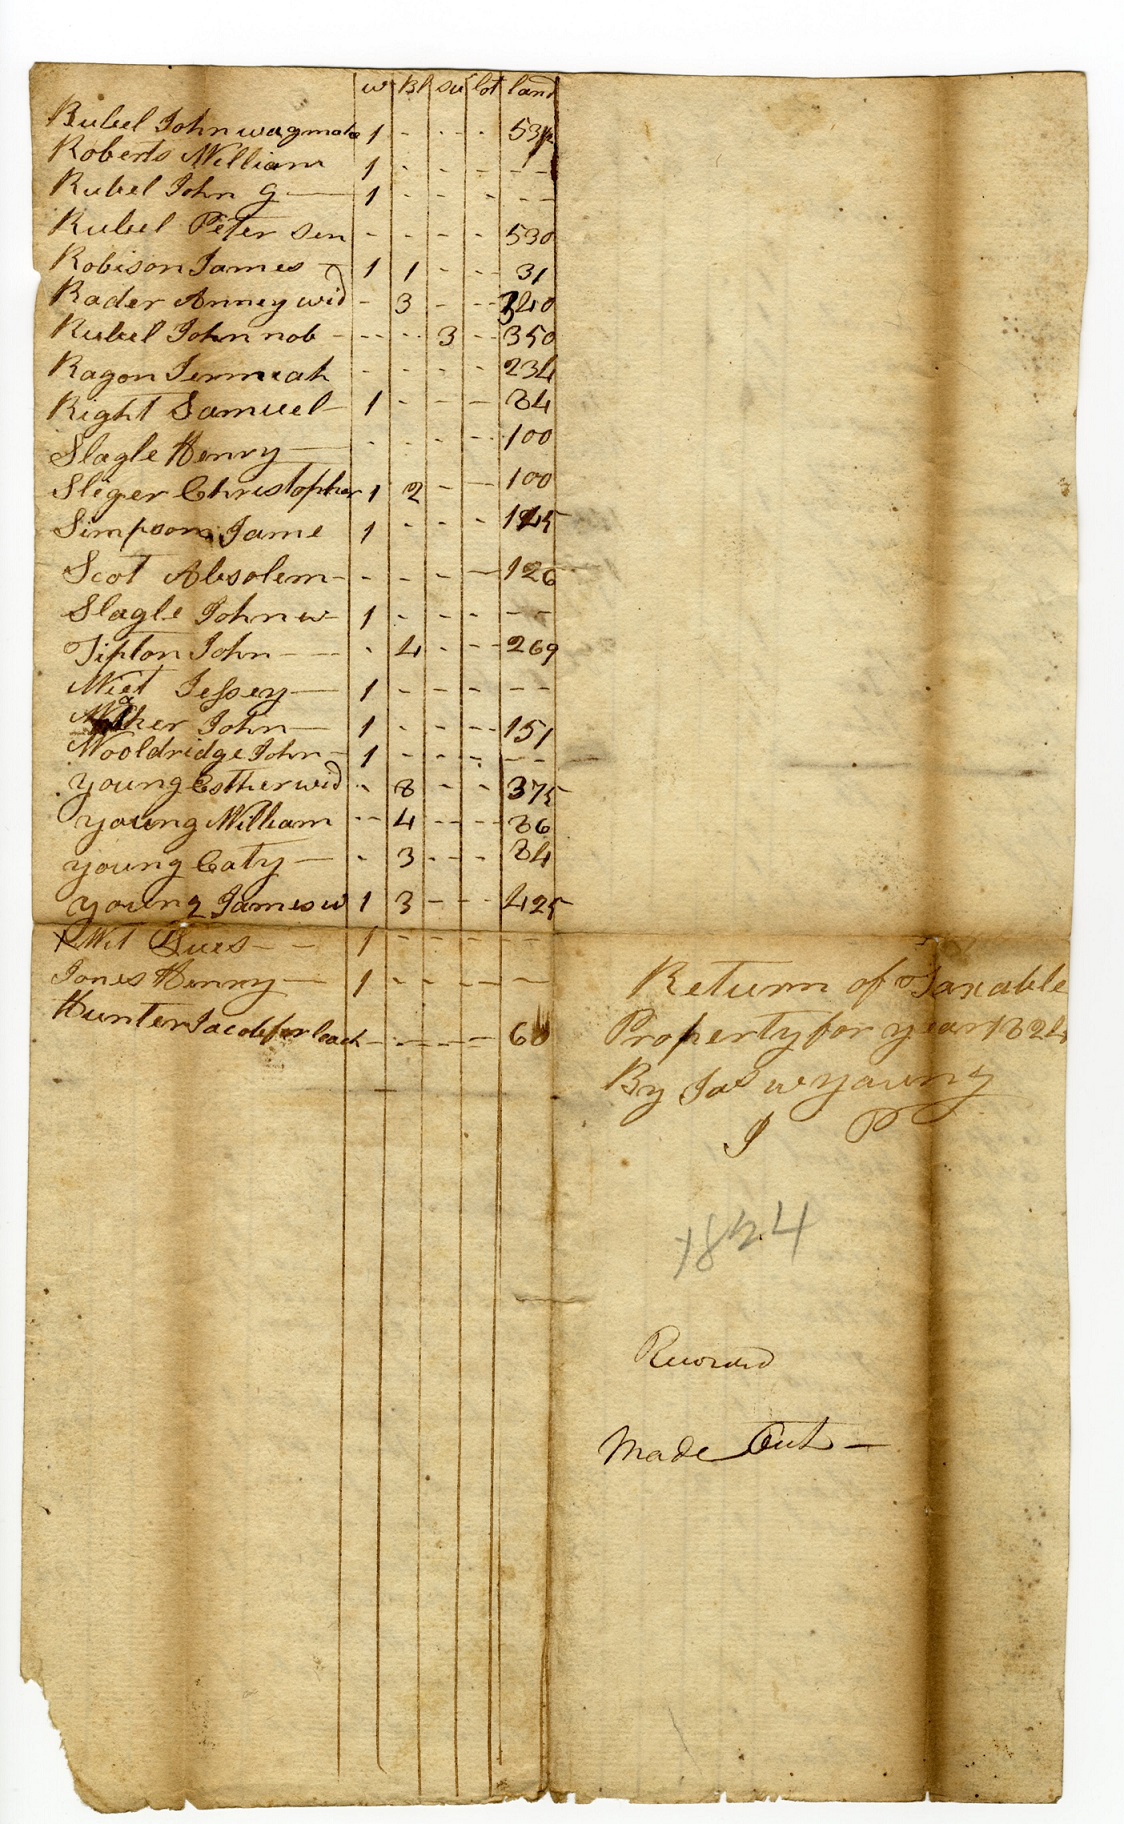 w Bl su lot land
Rubel John wagmake 1 - - - 53
Roberts William 1 - - - - -
Rubel John G — 1 - - - - -
Rubel Peter Sen - - - - 530
Robison James - 1 1 - - - 31
Rader Anney wid - 3 - - - 340
Rubel John nob - - - - 3 - - 350
Ragon Jermiah - - - - 234
Right Samuel - 1 - - - 84
Slagle Henry — - - - - 100
Sliger Christopher 1 2 - - 100
Simpson Jame 1 - - - 125
Scot Absolem - - - - - 126
Slagle John w - 1 - - - - -
Tipton John - - - 4 - - - 269
Wiet Jessey — 1 - - - - - -
Walker John — 1 - - - - 151
Wooldridge John - 1 - - - - -
young Esther wid - 8 - - 375
young William - - 4 - - - - 86
young Caty — - 3 - - - 84
young James w 1 3 - - - 425
x Wit - - 1 - - - - - -
Jones Henry — 1 - - - - - -
Hunter Jacob for leach - - - - - 60
Return of Taxable
Property for year 1824
By Jas w young
J P
1824
Made Out —